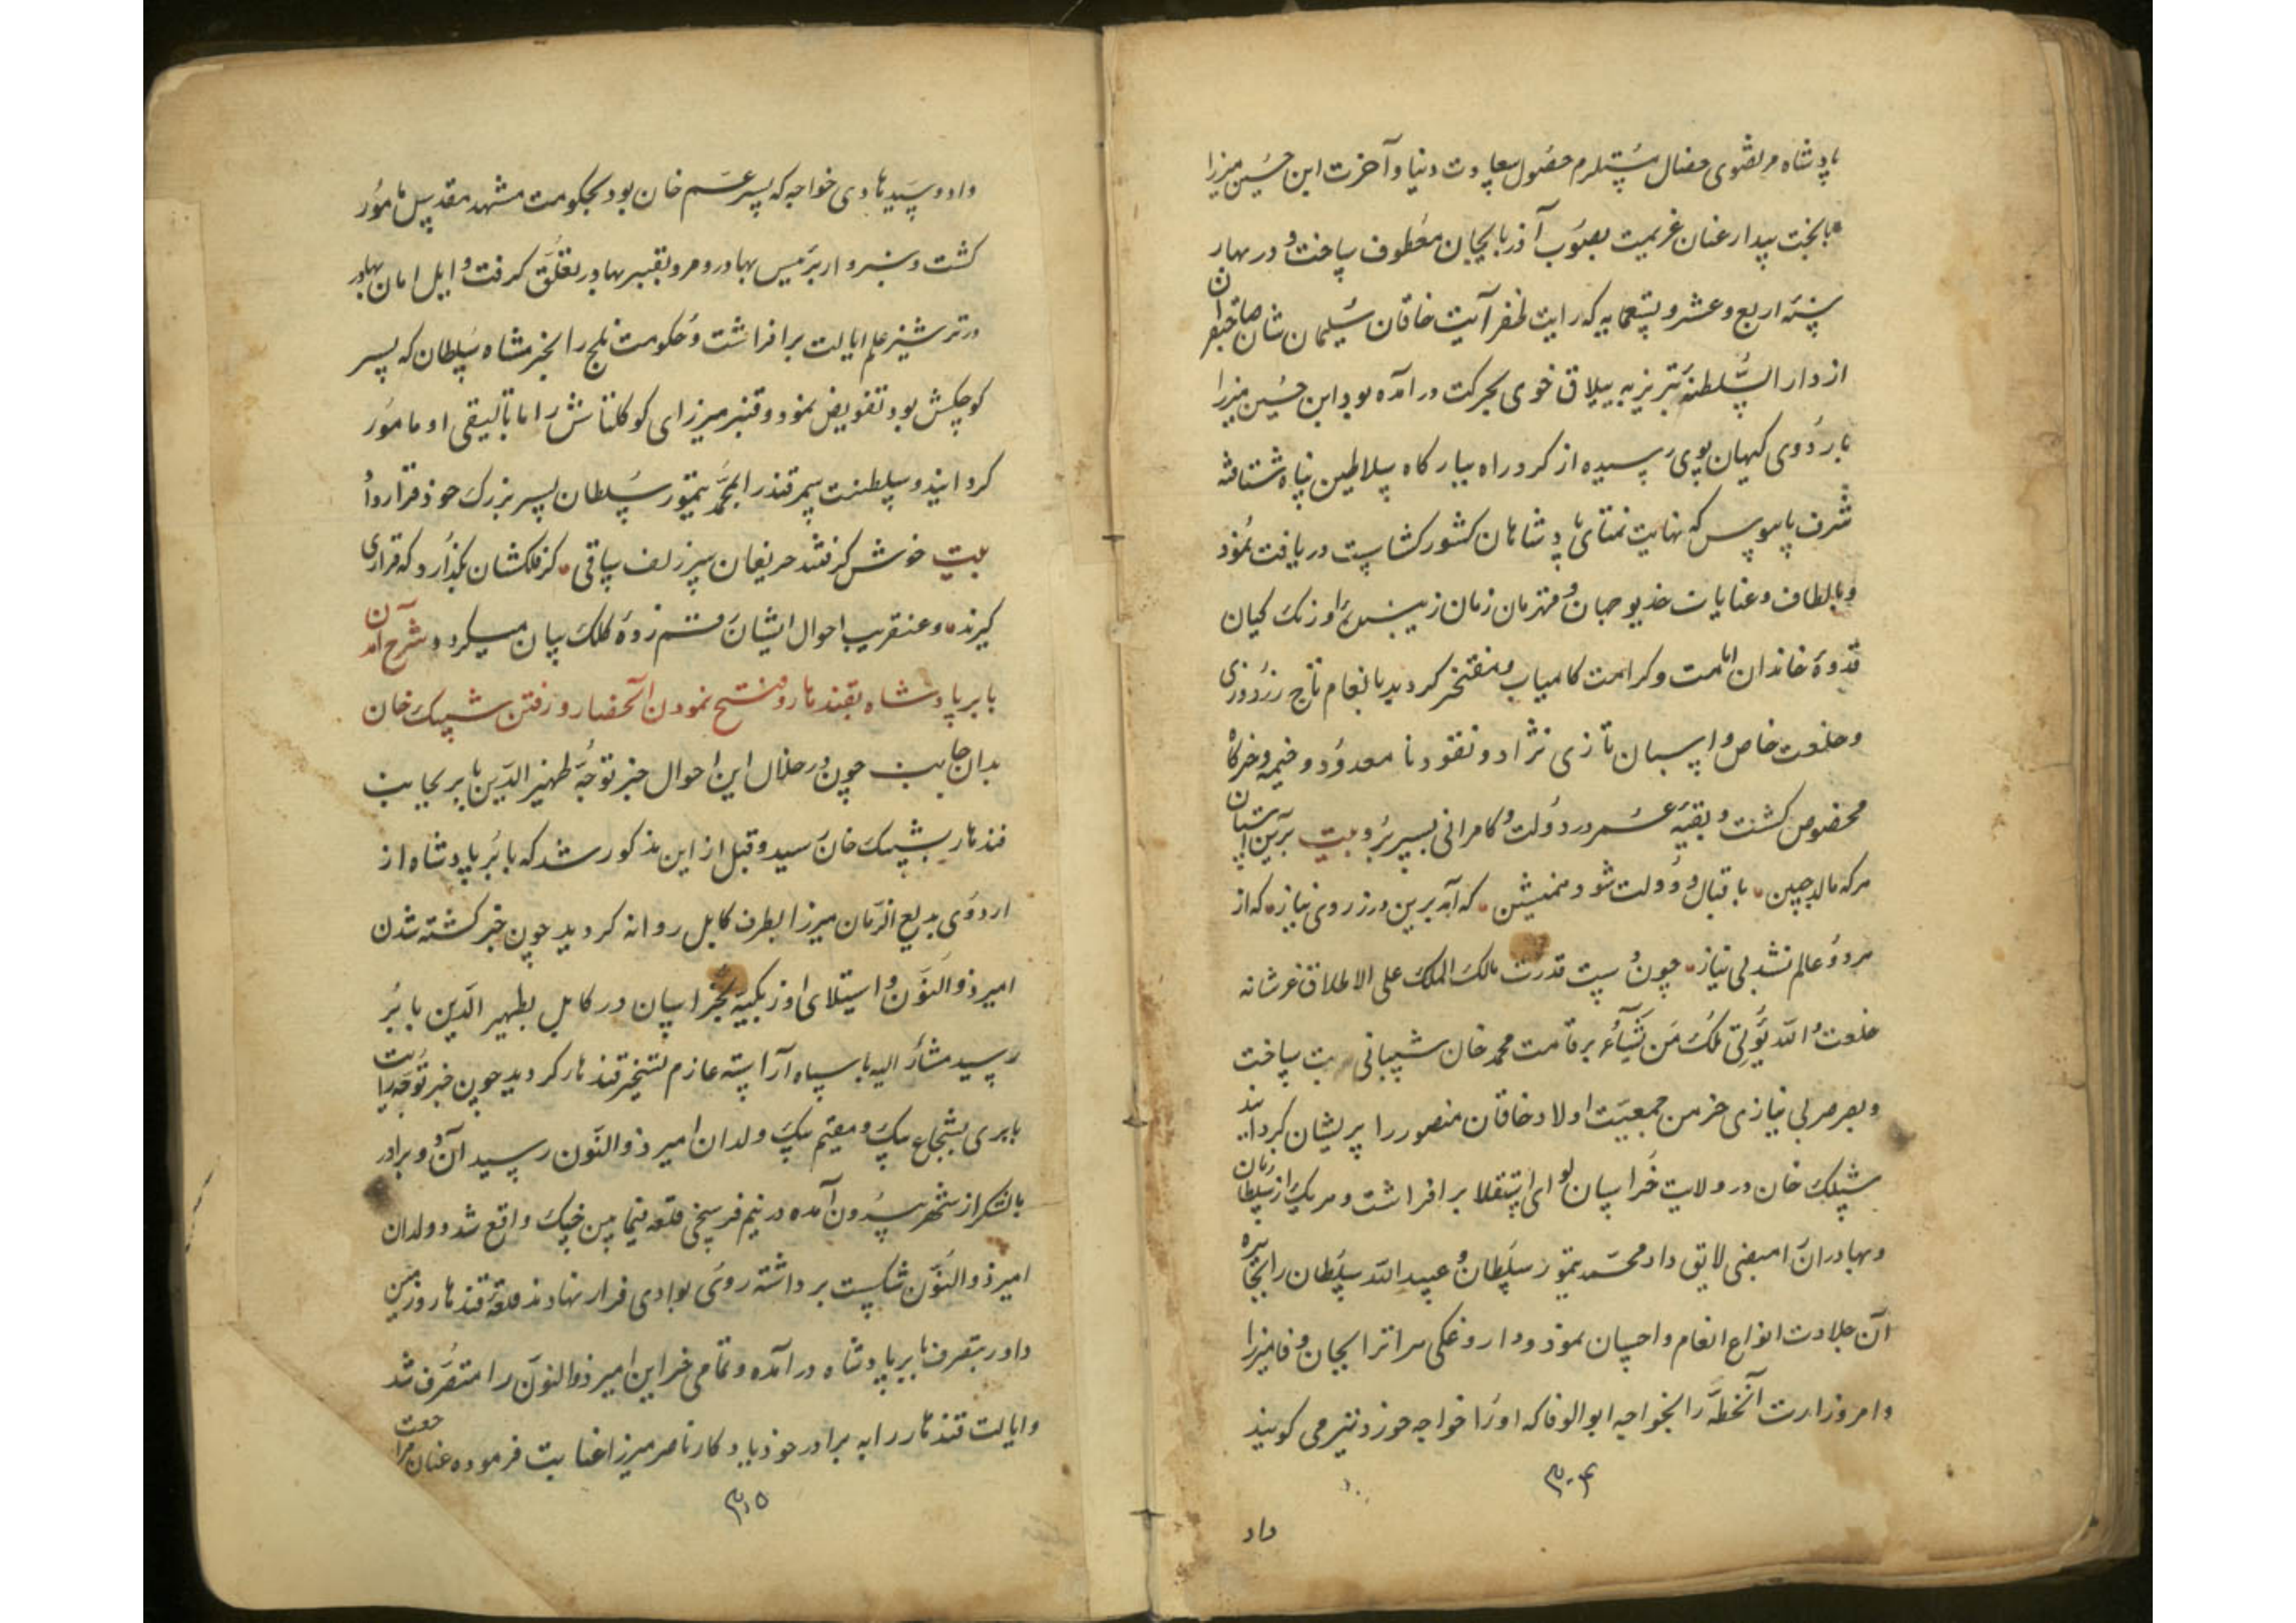 پادشاه مرتضوی خصال مستلزم حصول سعادت دنیا و آخرت ابن حسین میرزا
با بخت بیدار عنان عزیمت بصوب آذربایجان معطوف ساخت و در بهار
سنه اربع و عشر و تسعمایه که رایت ظفر آیت خاقان سلیمان شان صاحبقران
از دار السلطنه تبریز به ییلاق خوی بحرکت درآمده بود ابن حسین میرزا
باردوی کیهان پوی رسیده از کرد راه ببارکاه سلاطین پناه شتافته
شرف پابوس که نهایت تمنای پادشاهان کشورکشاست دریافت نمود
و بالطاف و عنایات خدیو جهان و قهرمان زمان زیبنده اورنک کیان
قدوه خاندان امامت و کرامت کامیاب و مفتخر کردید بانعام تاج زردوزی
و خلعت خاص و اسبان تازی نژاد و نقود نامعدود و خیمه و خرکاه
مخصوص کشت و بقیه عمر در دولت و کامرانی بسر برد بیت برین آستان
هرکه مالد جبین • باقبال و دولت شود همنشین • که آمد برین در ز روی نیاز • که از
هر دو عالم نشد بی نیاز • چون دست قدرت مالک الملک علی الاطلاق عز شانه
خلعت والله یؤتی ملکه من یشاء بر قامت محمد خان شیبانی ساخت
و بصرصر بی نیازی خرمن جمعیت اولاد خاقان منصور را پریشان کردانید
شیبک خان در ولایت خراسان لوای استقلا برافراشت و هر یک از سلطانان
و بهادران امنصبی لایق داد محمد تیمور سلطان و عبید الله سلطان را بجایزه
آن جلادت انواع انعام و احسان نمود و داروغکی هرات را بجان وفا میرزا
و امر وزارت آنخطه را بخواجه ابوالوفا که او را خواجه خورد نیز می کویند
۳۰۴
داد
داد و سید هادی خواجه که پسر عم خان بود بحکومت مشهد مقدس مامور
کشت و سبزوار برئیس بهادر و مرو بقنبر بهادر تعلق کرفت و ایل امان بهادر
در ترشیز علم ایالت برافراشت و حکومت بلخ را بخرمشاه سلطان که پسر
کوچکش بود تفویض نمود و قنبر میرزای کوکلتاش را باتالیقی او مامور
کردانید و سلطنت سمرقند را بمحمد تیمور سلطان پسر بزرک خود قرار داد
بیت خوش کرفتند حریفان سر زلف ساقی • کر فلکشان بکذارد که قراری
کیرند • و عنقریب احوال ایشان رقم زده کلک بیان میکردد شرح آمدن
بابر پادشاه بقندهار و فتح نمودن آنحصار و رفتن شیبک خان
بدان جانب چون در خلال این احوال خبر توجه ظهیر الدین بابر بجانب
قندهار بشیبک خان رسید و قبل از این مذکور شد که بابر پادشاه از
اردوی بدیع الزمان میرزا بطرف کابل روانه کردید چون خبر کشته شدن
امیر ذوالنون و استیلای اوزبکیه بخراسان در کابل بظهیر الدین بابر
رسید مشار الیه با سپاه آراسته عازم تسخیر قندهار کردید چون خبر توجه رایات
بابری بشجاع بیک و مقیم بیک ولدان امیر ذوالنون رسید آن دو برادر
با لشکر از شهر بیرون آمده در نیم فرسخی قلعه فیمابین جنک واقع شد و ولدان
امیر ذوالنون شکست برداشته روی بوادی فرار نهادند قلعه قندهار و زمین
داور بتصرف بابر پادشاه درآمده و تمامی خزاین امیر ذوالنون را متصرف شد
و ایالت قندهار را به برادر خود یادکار ناصر میرزا عنایت فرموده عنان مراجعت
۳۰۵